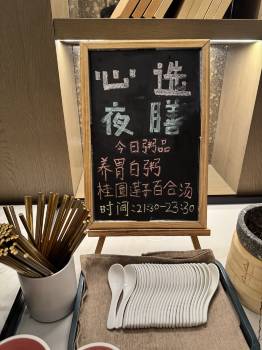 心选
夜膳
今日粥品
养胃白粥
桂圆莲子百合汤
时间:21:30-23:30